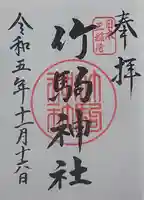 奉拝
日本三稲荷
竹駒神社
令和五年十一月十六日